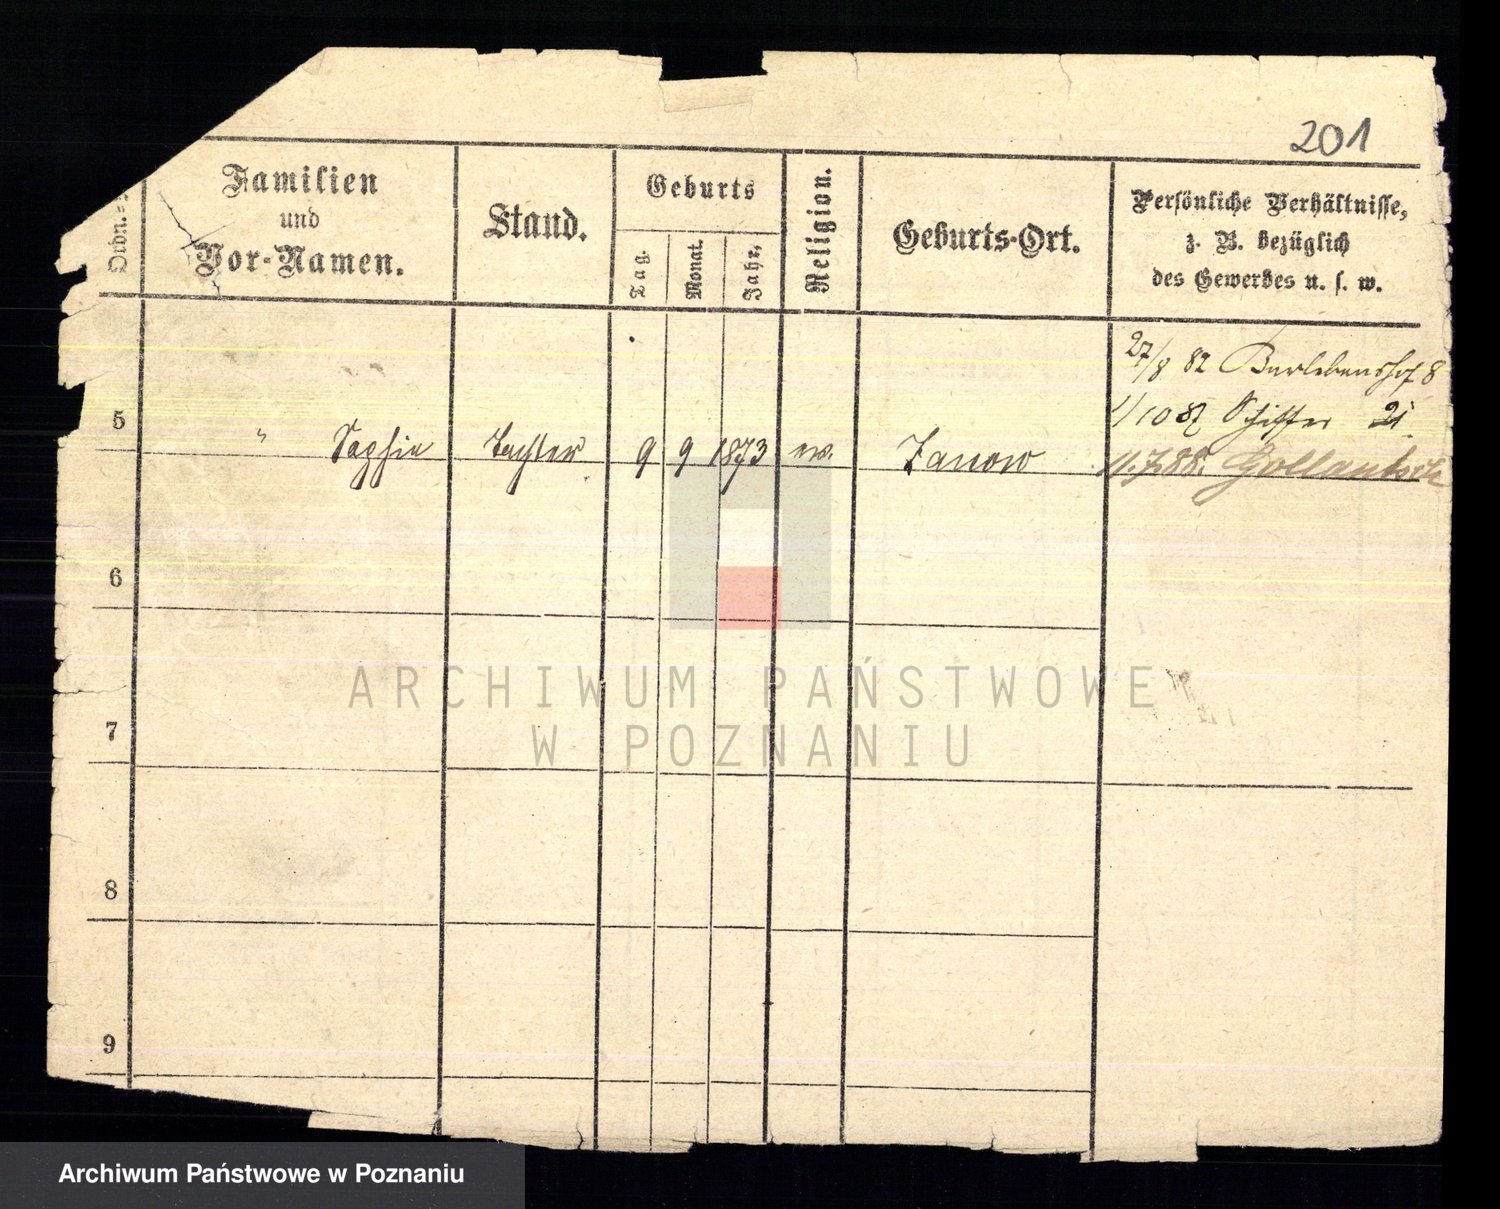 201
Ordn.-
Familien
und
Vor-Namen.
Stand.
Geburts
Tag.
Monat.
Jahr.
Religion.
Geburts-Ort.
Persönliche Verhältnisse,
z. B. bezüglich
des Gewerbes u. s. w.
27/8 82 Berlebenshof 8
1/10 87 Schiffer 21
5 " Sophie Tochter 9 9 1873 ev. Zanow 11.7.88. Gollantsch
6
7
8
9
ARCHIWUM PAŃSTWOWE
W POZNANIU
Archiwum Państwowe w Poznaniu